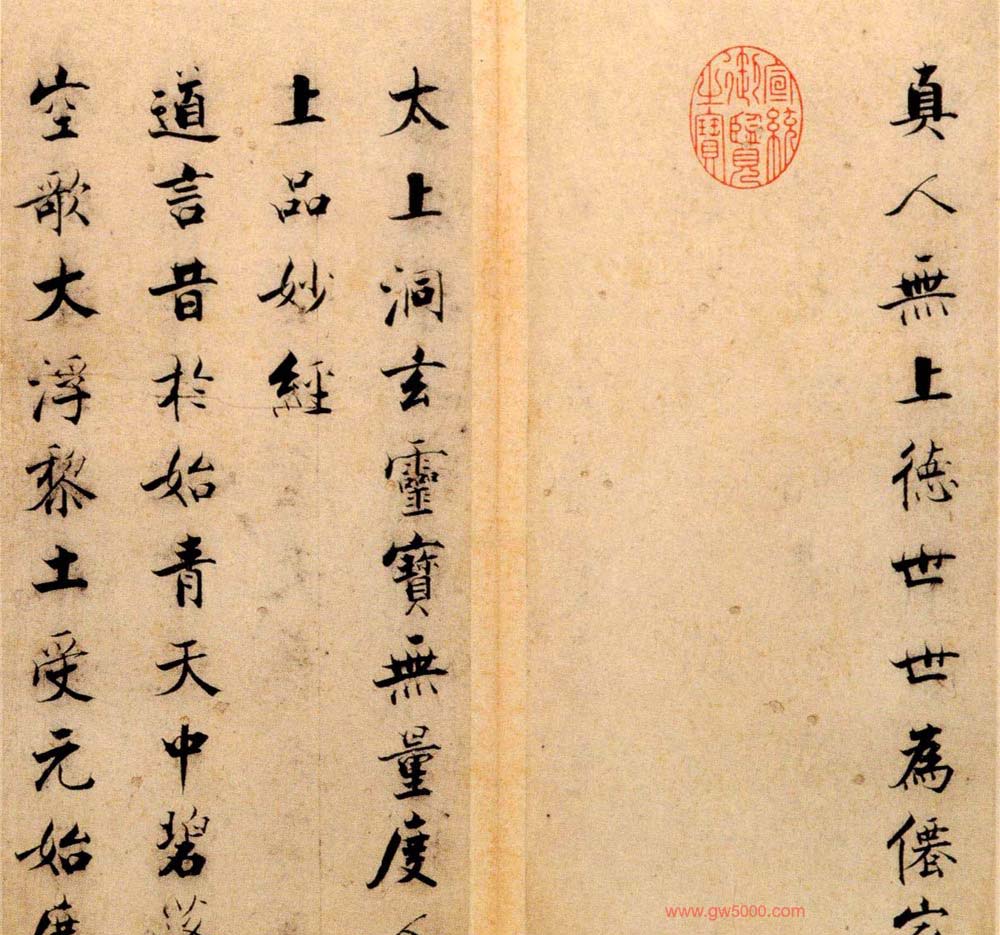 真人無上德世世爲僊家
宣統御覽之寶
太上洞玄靈寶無量度人
上品妙經
道言昔於始青天中碧落
空歌大浮黎土受元始度
www.gw5000.com